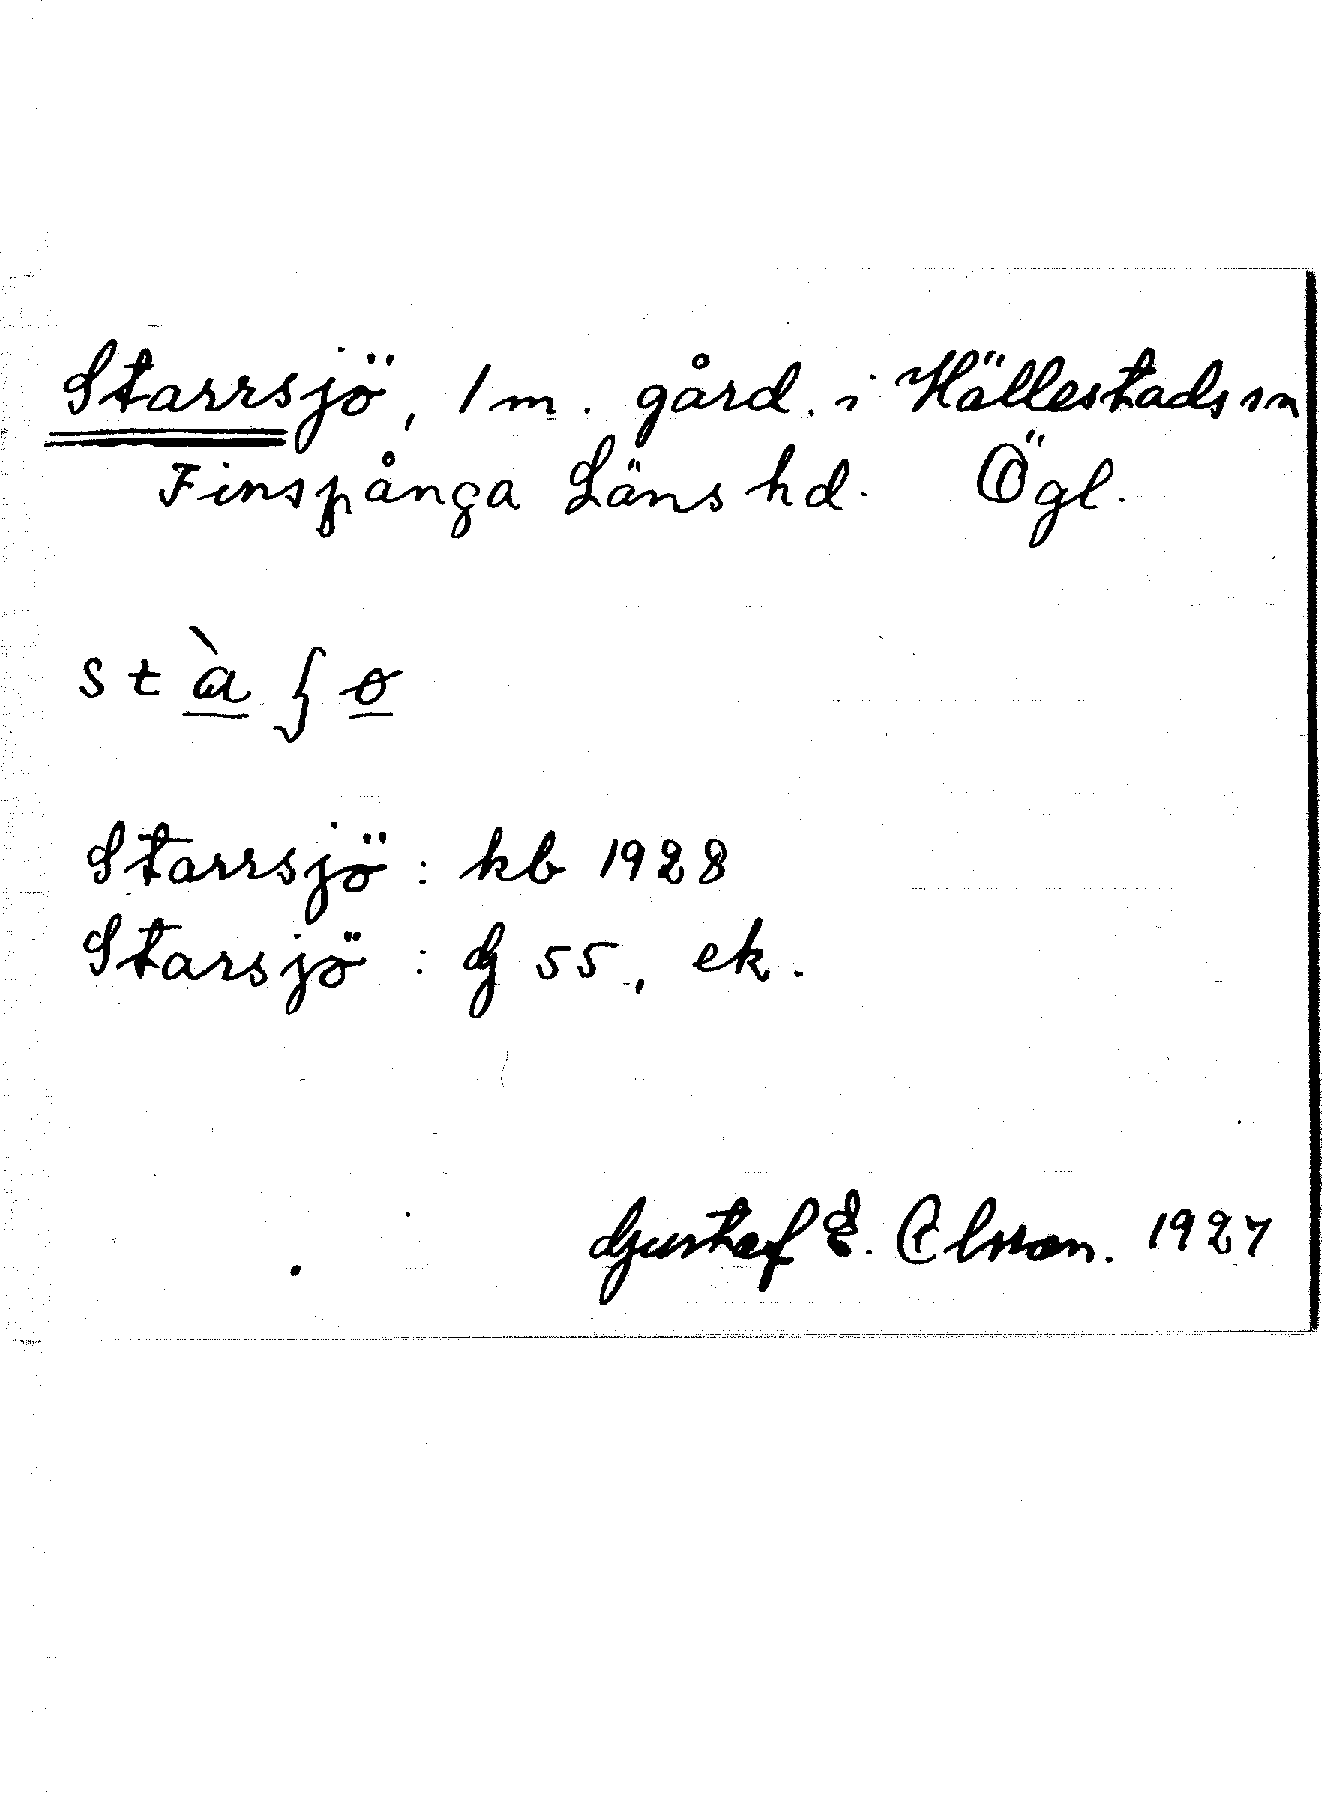 Starrsjö, 1 m. gård. i Hällestads sn
Finspånga Läns hd. Ögl.
stà ʃ ø
Starrsjö : kb 1928
Starsjö : G 55, ek.
Gustaf E. Olsson. 1927